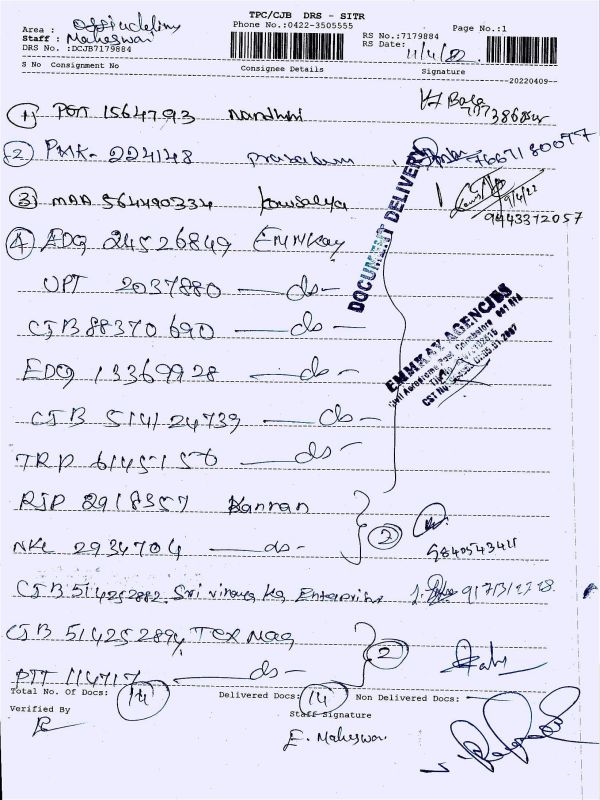 TPC/CJB DRS - SITR
Phone No.:0422-3505555
Page No.:1
Area :
Staff : Maheswari
DRS No. :DCJB7179884
RS No.:7179884
RS Date: 11/4/22
S No Consignment No Consignee Details Signature
20220409
1) PGT 1564793 Nandhini
2) PMK- 224148 7667180077
3) MAA 564490334 Kowsalya 9/4/22
9443372057
4) EDQ 24526849 EMNKay
UPT 2037880 - do -
CJB 88370690 - do -
EDQ 13369928 - do -
CJB 514124739 - do -
TRP 6145156 - do -
DOCUMENT DELIVERY
EMMKAY AGENCIES
RJP 2918357 Kannan
NKL 2934704 - do -
CJB 514252882 Sri Vinayaga Enterprise
CJB 514252894 TEX Mag 2
PTT 114717 - do -
Total No. Of Docs: 14 Delivered Docs: 14 Non Delivered Docs:
Verified By
Staff Signature
E. Maheswari